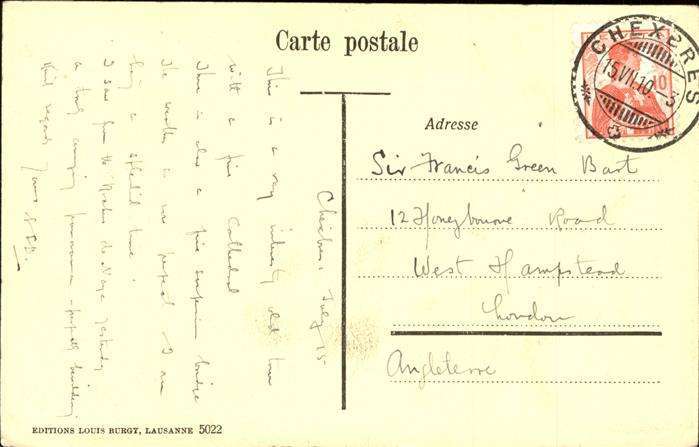 Carte postale
CHEXBRES
15.VII.10.-3
10
Adresse
Sir Francis Green Bart
12 Honeybourne Road
West Hampstead
London
Angleterre
Chexbres July 15
This is a very interesting old town
with a fine Cathedral
There is also a fine suspension bridge
The weather is now perfect I am
having a splendid time.
I saw from the Rochers de Naye yesterday
a lovely
Kind regards Yours
EDITIONS LOUIS BURGY, LAUSANNE 5022